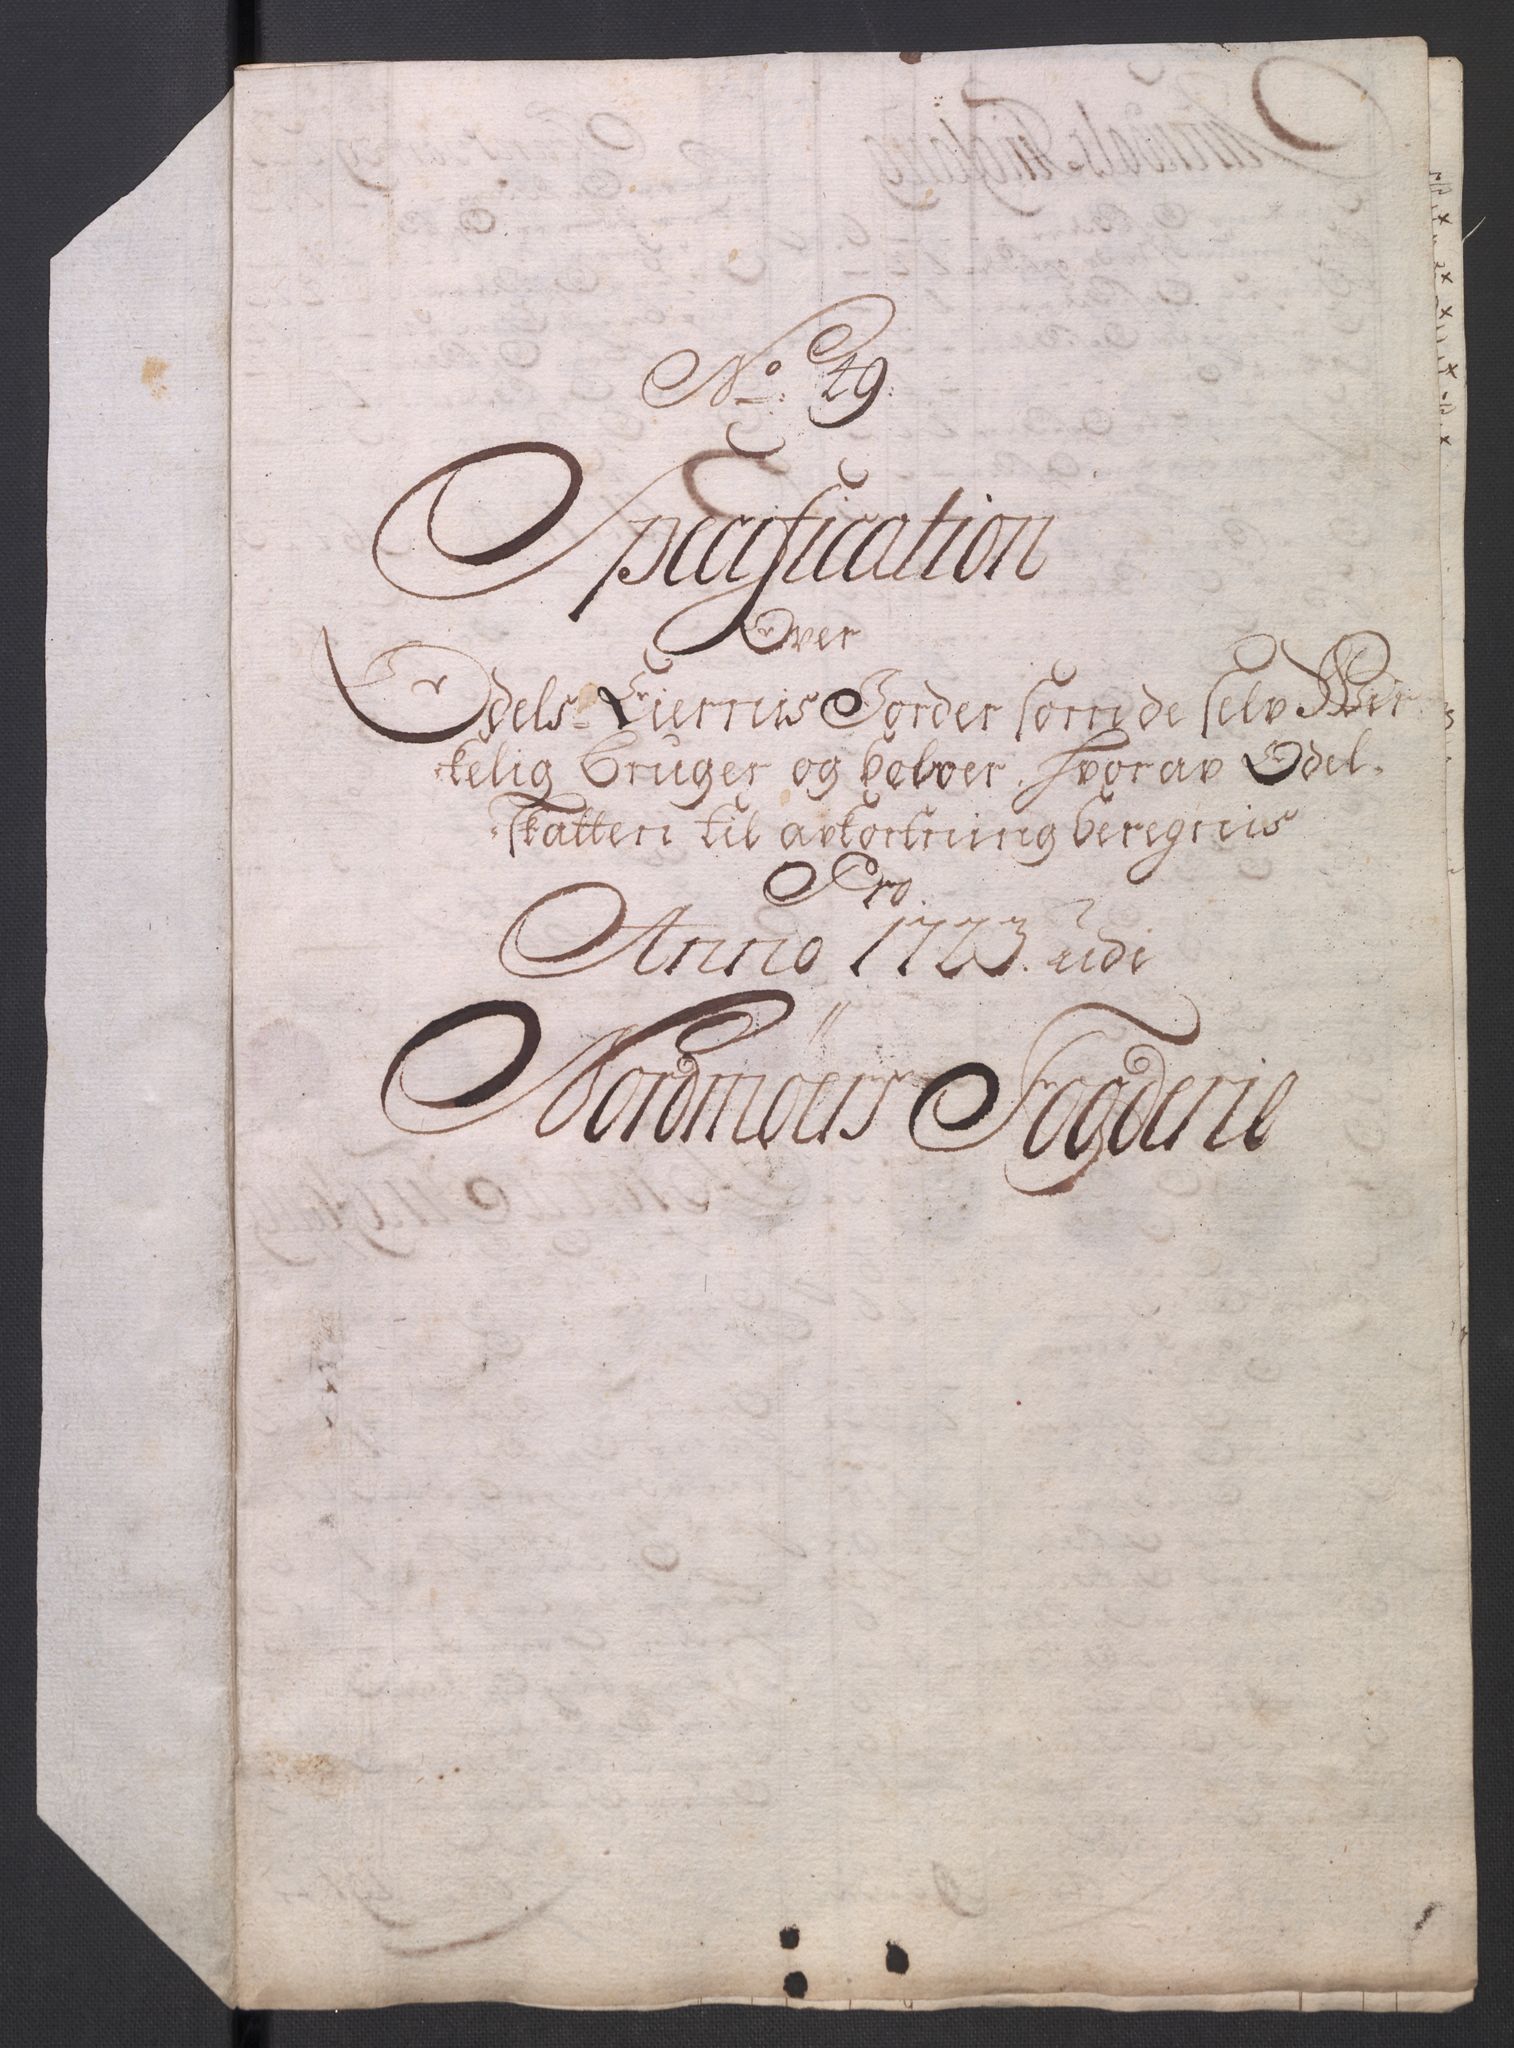 No: 49.
Specification
Over
Odels-Eiernis Jorder som de selv Wir
kelig bruger og bebver, hvorav Odel-
skatten til avkortning beregnis
Pro.
Anno 1723. udi
Nordmöers Fogderie